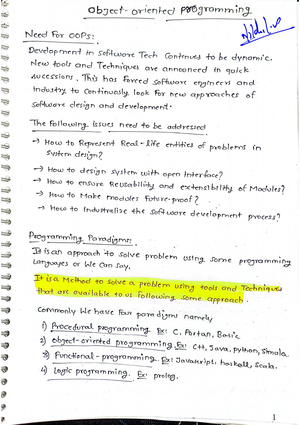 Object-oriented programming
Need For OOPs:
Development in Software Tech Continues to be dynamic.
New tools and Techniques are announced in quick
sucessions. This has forced software engineers and
Industry to Continously look for new approaches of
software design and development.
The following Issues need to be addressed
→ How to Represent Real-life entities of problems in
system design?
→ How to design system with open Interface?
→ How to ensure Reusability and extensibility of Modules?
→ How to Make modules Future-proof?
→ How to Industrelize the Software development process?
Programming Paradigms:
It is an approach to solve problem using some programming
Languages or We Can Say,
It is a Method to solve a problem using tools and Techniques
that are available to us following some approach.
Commonly We have Four paradigms namely
1) Procedural programming. Ex: C, Fortan, Basic
2) Object-oriented programming. Ex: C++, Java, python, Simala.
3) Functional-programming. Ex: Javascript, haskell, Scala.
4) Logic programming. Ex: prolog.
1